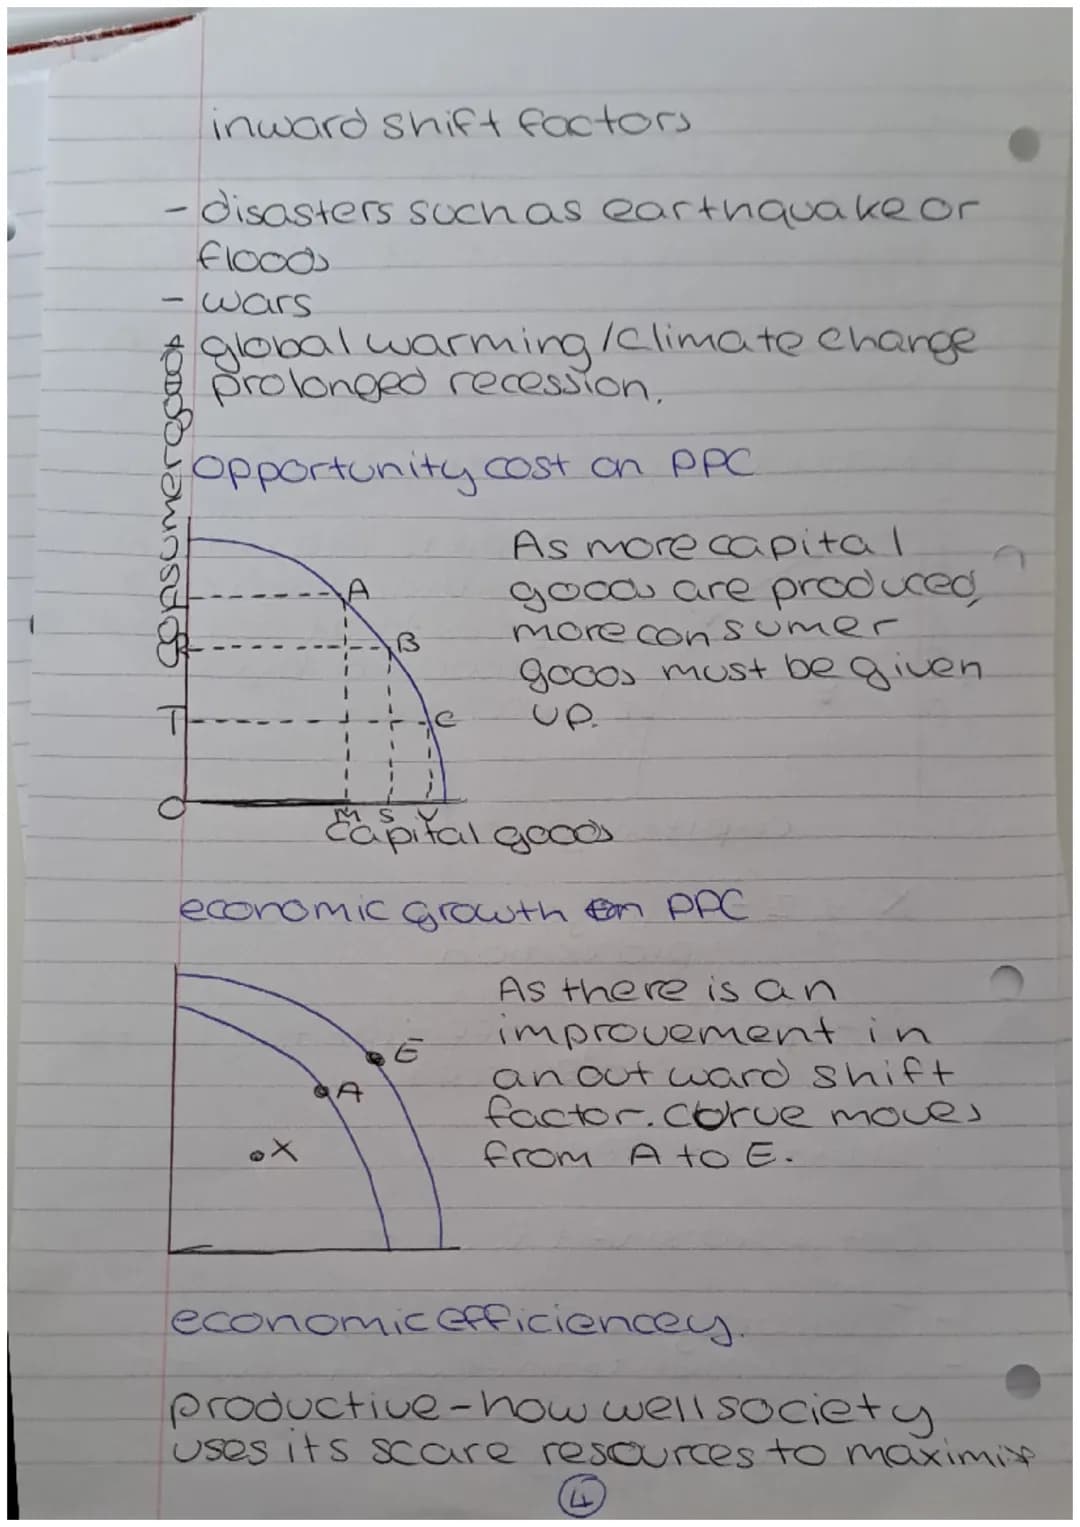 inward shift factors
- disasters such as earthquake or
floods
- wars
global warming / climate change
prolonged recession.
opportunity cost on PPC
consumer goods
A
B
R
T
C
O
M S V
capital goods
As more capital
goods are produced,
more consumer
goods must be given
up.
economic growth on PPC
E
A
X
As there is an
improvement in
an outward shift
factor. Corve moves
from A to E.
economic efficiencey.
productive - how well society
uses its scare resources to maximise
4